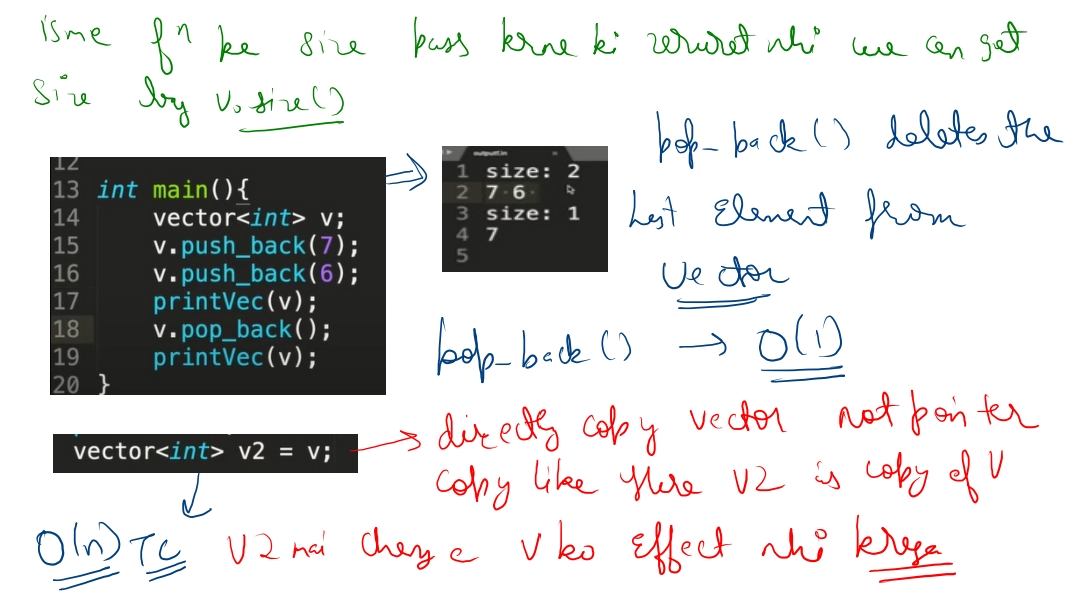 isme fn ke size pass krne ki zeruret nhi we can get
size by v.size()
12
13 int main(){
14 vector<int> v;
15 v.push_back(7);
16 v.push_back(6);
17 printVec(v);
18 v.pop_back();
19 printVec(v);
20 }
1 size: 2
2 7 6
3 size: 1
4 7
5
pop_back() deletes the
last Element from
vector
pop_back() → O(1)
vector<int> v2 = v;
directly copy vector not pointer
copy like here v2 is copy of V
O(n) TC
V2 mai change V ko Effect nhi krega